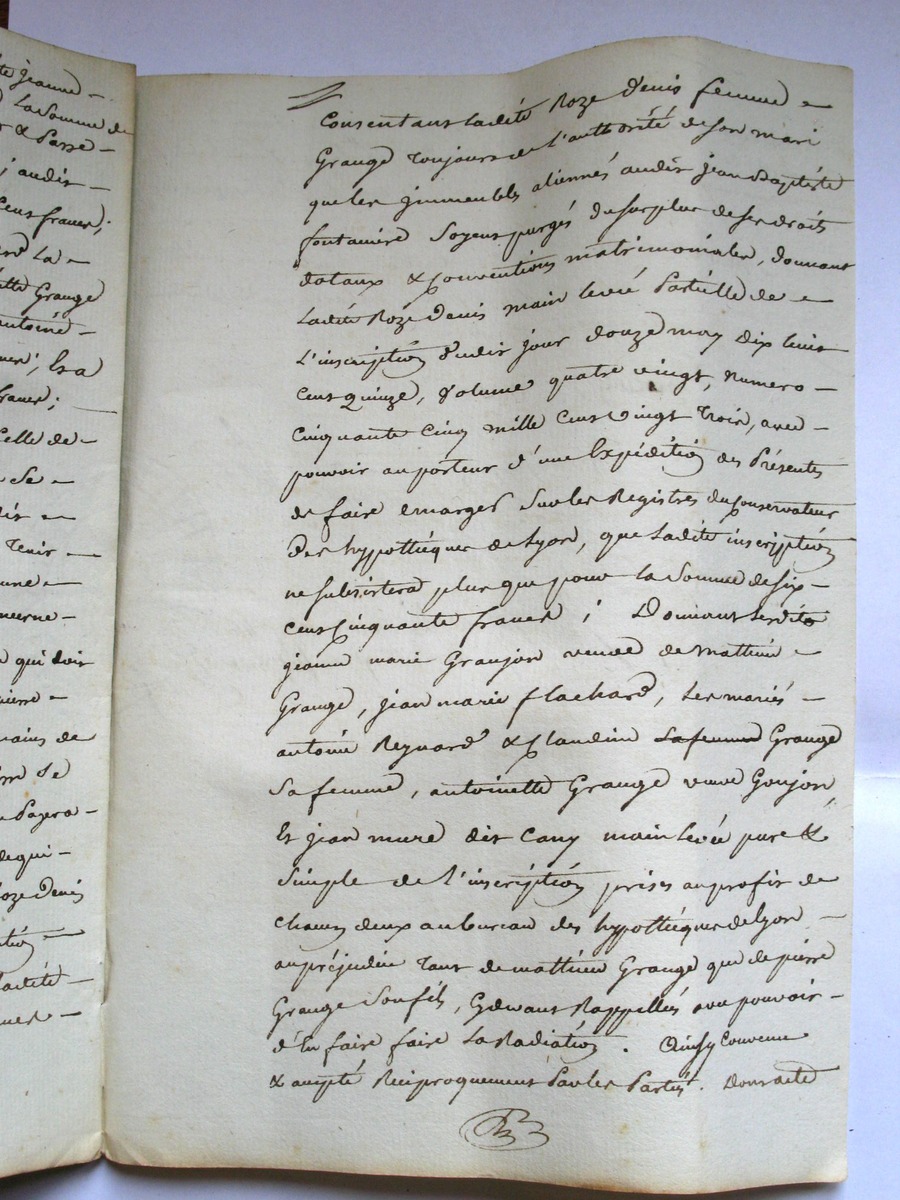 te jeanne -
La Somme de
& Passe -
; audit -
Cens francs;
La -
Grange
antoine -
; Et a
francs;
Celle de -
Se -
Tenir -
une -
qui doit
pierre -
mains de
Se
Payera -
dequi -
Roze Denis
ladite -
Consentant Ladite Roze Denis femme -
Grange Toujours de L'authorité de son mari
que les jmmeubles aliennés audit jean Baptiste
fontainere Soyent purgés du surplus de ses droits
dotaux & Conventions matrimoniales, donnant
Ladite Roze Denis main levée Partielle de -
L'inscription dudit jour douze may dix huit
Cent Quinze, Volume quatre vingt, Numero -
Cinquante Cinq mille Cent Vingt Trois, avec -
pouvoir au porteur d'une Expédition des Présentes
de faire emarger Sur les Registres du Conservateur
des hyppothéques de Lyon, que Ladite inscription
ne subsistera plus que pour La Somme de Six -
Cent Cinquante francs ; Donnant Lesdits
jeanne marie Granjon veuve de Mathieu -
Grange, jean marie flachard, Les mariés -
antoine Reynard & Claudine La femme Grange
Sa femme, antoinette Grange veuve Goujon
Et jean mure dit Cany main Levée pure &
Simple de L'inscription prises au profit de
Chacun deux au bureau des hyppothéques de Lyon -
au préjudice Tant de mathieu Grange que de pierre
Grange Son fils, Cydevant Rappellés avec pouvoir -
d'En faire faire La Radiation. Ainsy Convenu
& accepté Réciproquement Par les Parties. Dont acte